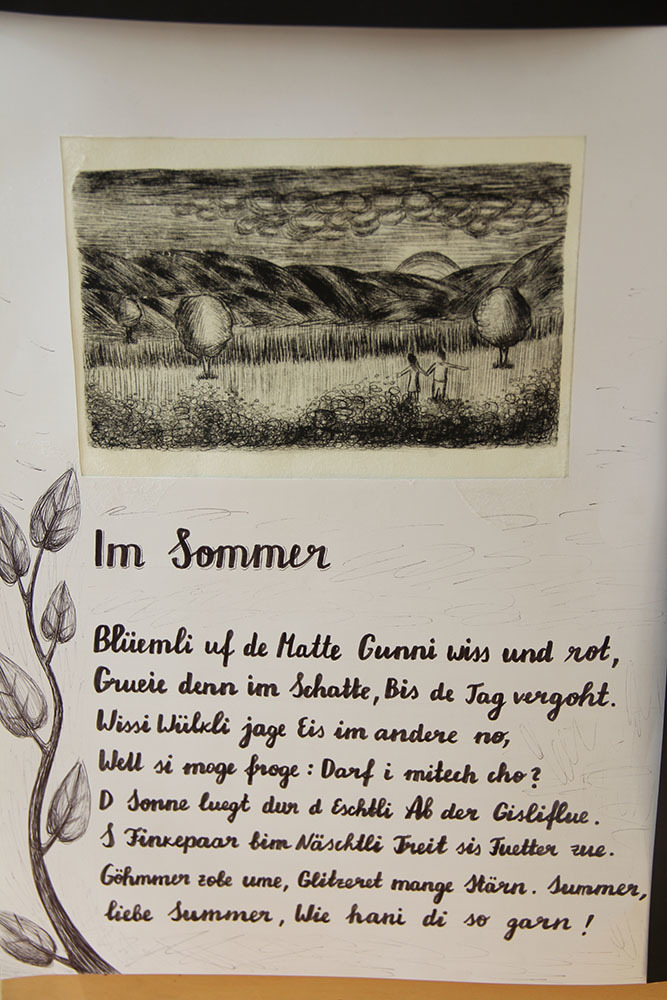 Im Sommer
Blüemli uf de Matte Gunni wiss und rot,
Grueie denn im Schatte, Bis de Tag vergoht.
Wissi Wülkli jage Eis im andere no,
Well si moge froge: Darf i mitech cho?
D Sonne luegt dur d Eschtli Ab der Gisliflue.
S Finkepaar bim Näschtli Treit sis Fuetter zue.
Göhmmer zobe ume, Glitzeret mange Stärn. Summer,
liebe Summer, Wie hani di so garn!